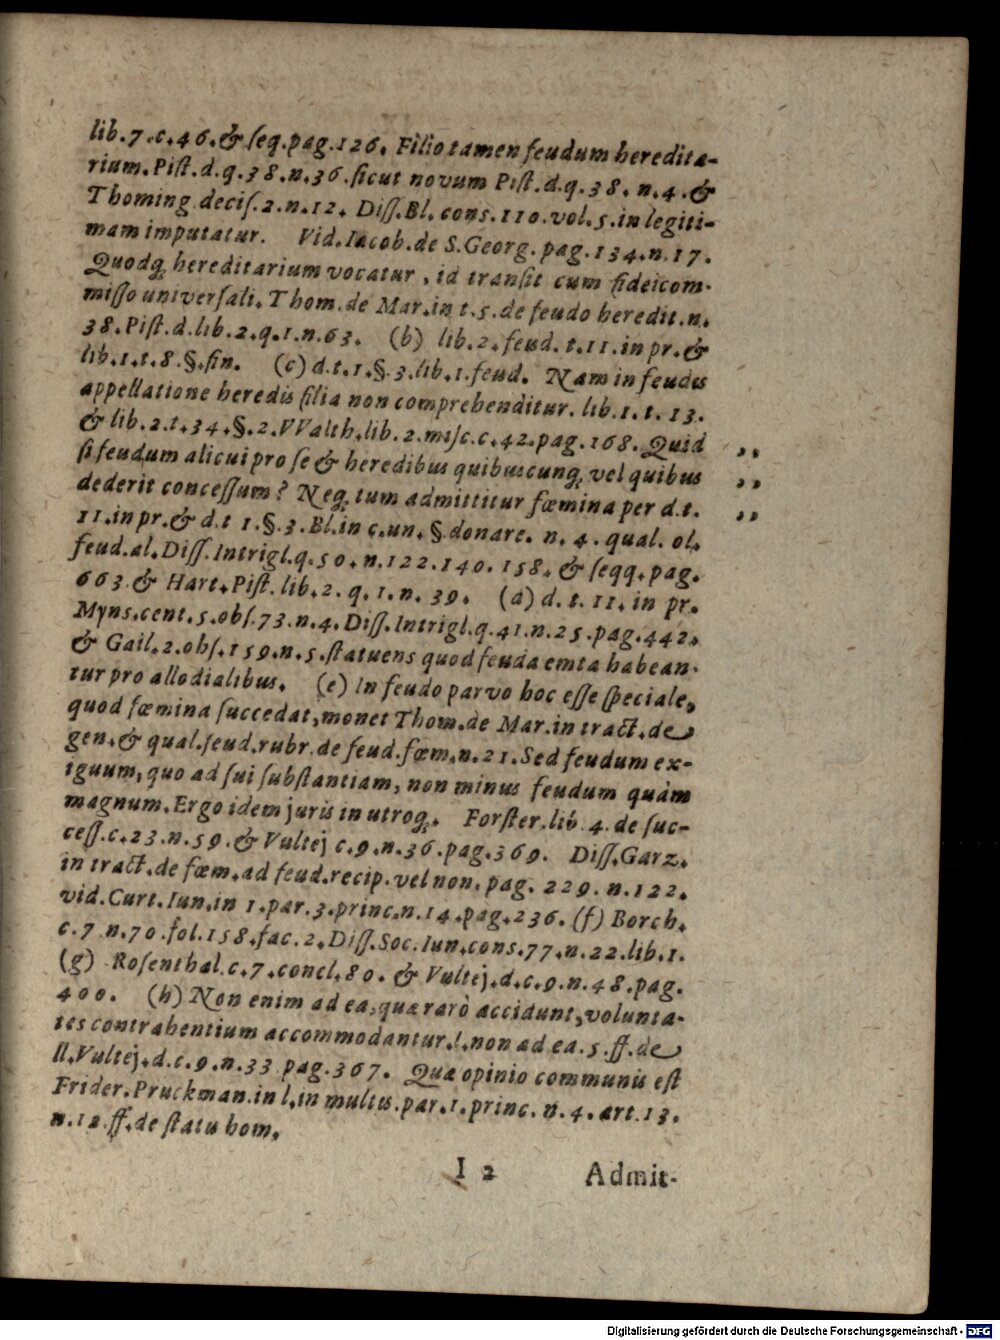 lib.7.c.46.& ſeq.pag.126. Filio tamen feudum heredita-
rium.Piſt.d.q.38.n.36.ſicut novum Piſt.d.q.38.n.4.&
Thoming deciſ.2.n.12. Diſſ.Bl.conſ.110.vol.5.in legiti-
mam imputatur. Vid.Iacob.de S.Georg.pag.134.n.17.
Quodq́; hereditarium vocatur, id tranſit cum fideicom-
miſſo univerſali.Thom.de Mar.in t.5.de feudo heredit.n.
38.Piſt.d.lib.2.q.1.n.63. (b) lib.2.feud.t.11.in pr.&
lib.1.t.8.§.fin. (c) d.t.1.§.3.lib.1.feud. Nam in feudis
appellatione heredis filia non comprehenditur.lib.1.t.13.
& lib.2.t.34.§.2.VValth.lib.2.miſc.c.42.pag.168.Quid
ſi feudum alicui pro ſe & heredibus quibuscunq́; vel quibus
dederit conceſſum? Neq́; tum admittitur fœmina per d.t.
11.in pr.& d.t 1.§.3.Bl.in c.un.§.donare.n.4.qual.ol.
feud.al.Diſſ.Intrigl.q.50.n.122.140.158.& ſeqq.pag.
663.& Hart.Piſt.lib.2.q.1.n.39. (d) d.t.11.in pr.
Myns.cent.5.obſ.73.n.4.Diſſ.Intrigl.q.41.n.25.pag.442.
& Gail.2.obſ.159.n.5.ſtatuens quod feuda emta habean-
tur pro allodialibus. (e) In feudo parvo hoc eſſe ſpeciale,
quod fœmina ſuccedat, monet Thom.de Mar.in tract.de
gen.& qual.feud.rubr.de feud.fœm.n.21.Sed feudum ex-
iguum, quo ad ſui ſubſtantiam, non minus feudum quàm
magnum.Ergo idem juris in utroq́;. Forſter.lib 4.de ſuc-
ceſſ.c.23.n.59.& Vultej c.9.n.36.pag.369. Diſſ.Garz.
in tract.de fœm.ad feud.recip.vel non.pag.229.n.122.
vid.Curt.Iun.in 1.par.3.princ.n.14.pag.236.(f) Borch.
c.7 n.70.fol.158.fac.2.Diſſ.Soc.Iun.conſ.77.n.22.lib.1.
(g) Roſenthal.c.7.concl.80.& Vultej.d.c.9.n.48.pag.
400. (h) Non enim ad ea, quæ rarò accidunt, volunta-
tes contrahentium accommodantur.l.non ad ea.5.ff.de
ll.Vultej.d.c.9.n.33 pag.367. Quæ opinio communis eſt
Frider.Pruckman.in l.in multis.par.1.princ.n.4.art.13.
n.12.ff.de ſtatu hom.
,,
,,
,,
I 2 Admit-
Digitalisierung gefördert durch die Deutsche Forschungsgemeinschaft - DFG